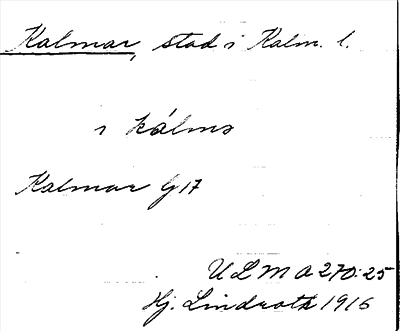 Kalmar, stad i Kalm. l.
i kálmə
Kalmar G 17
ULMA 270:25
Hj. Lindroth 1916